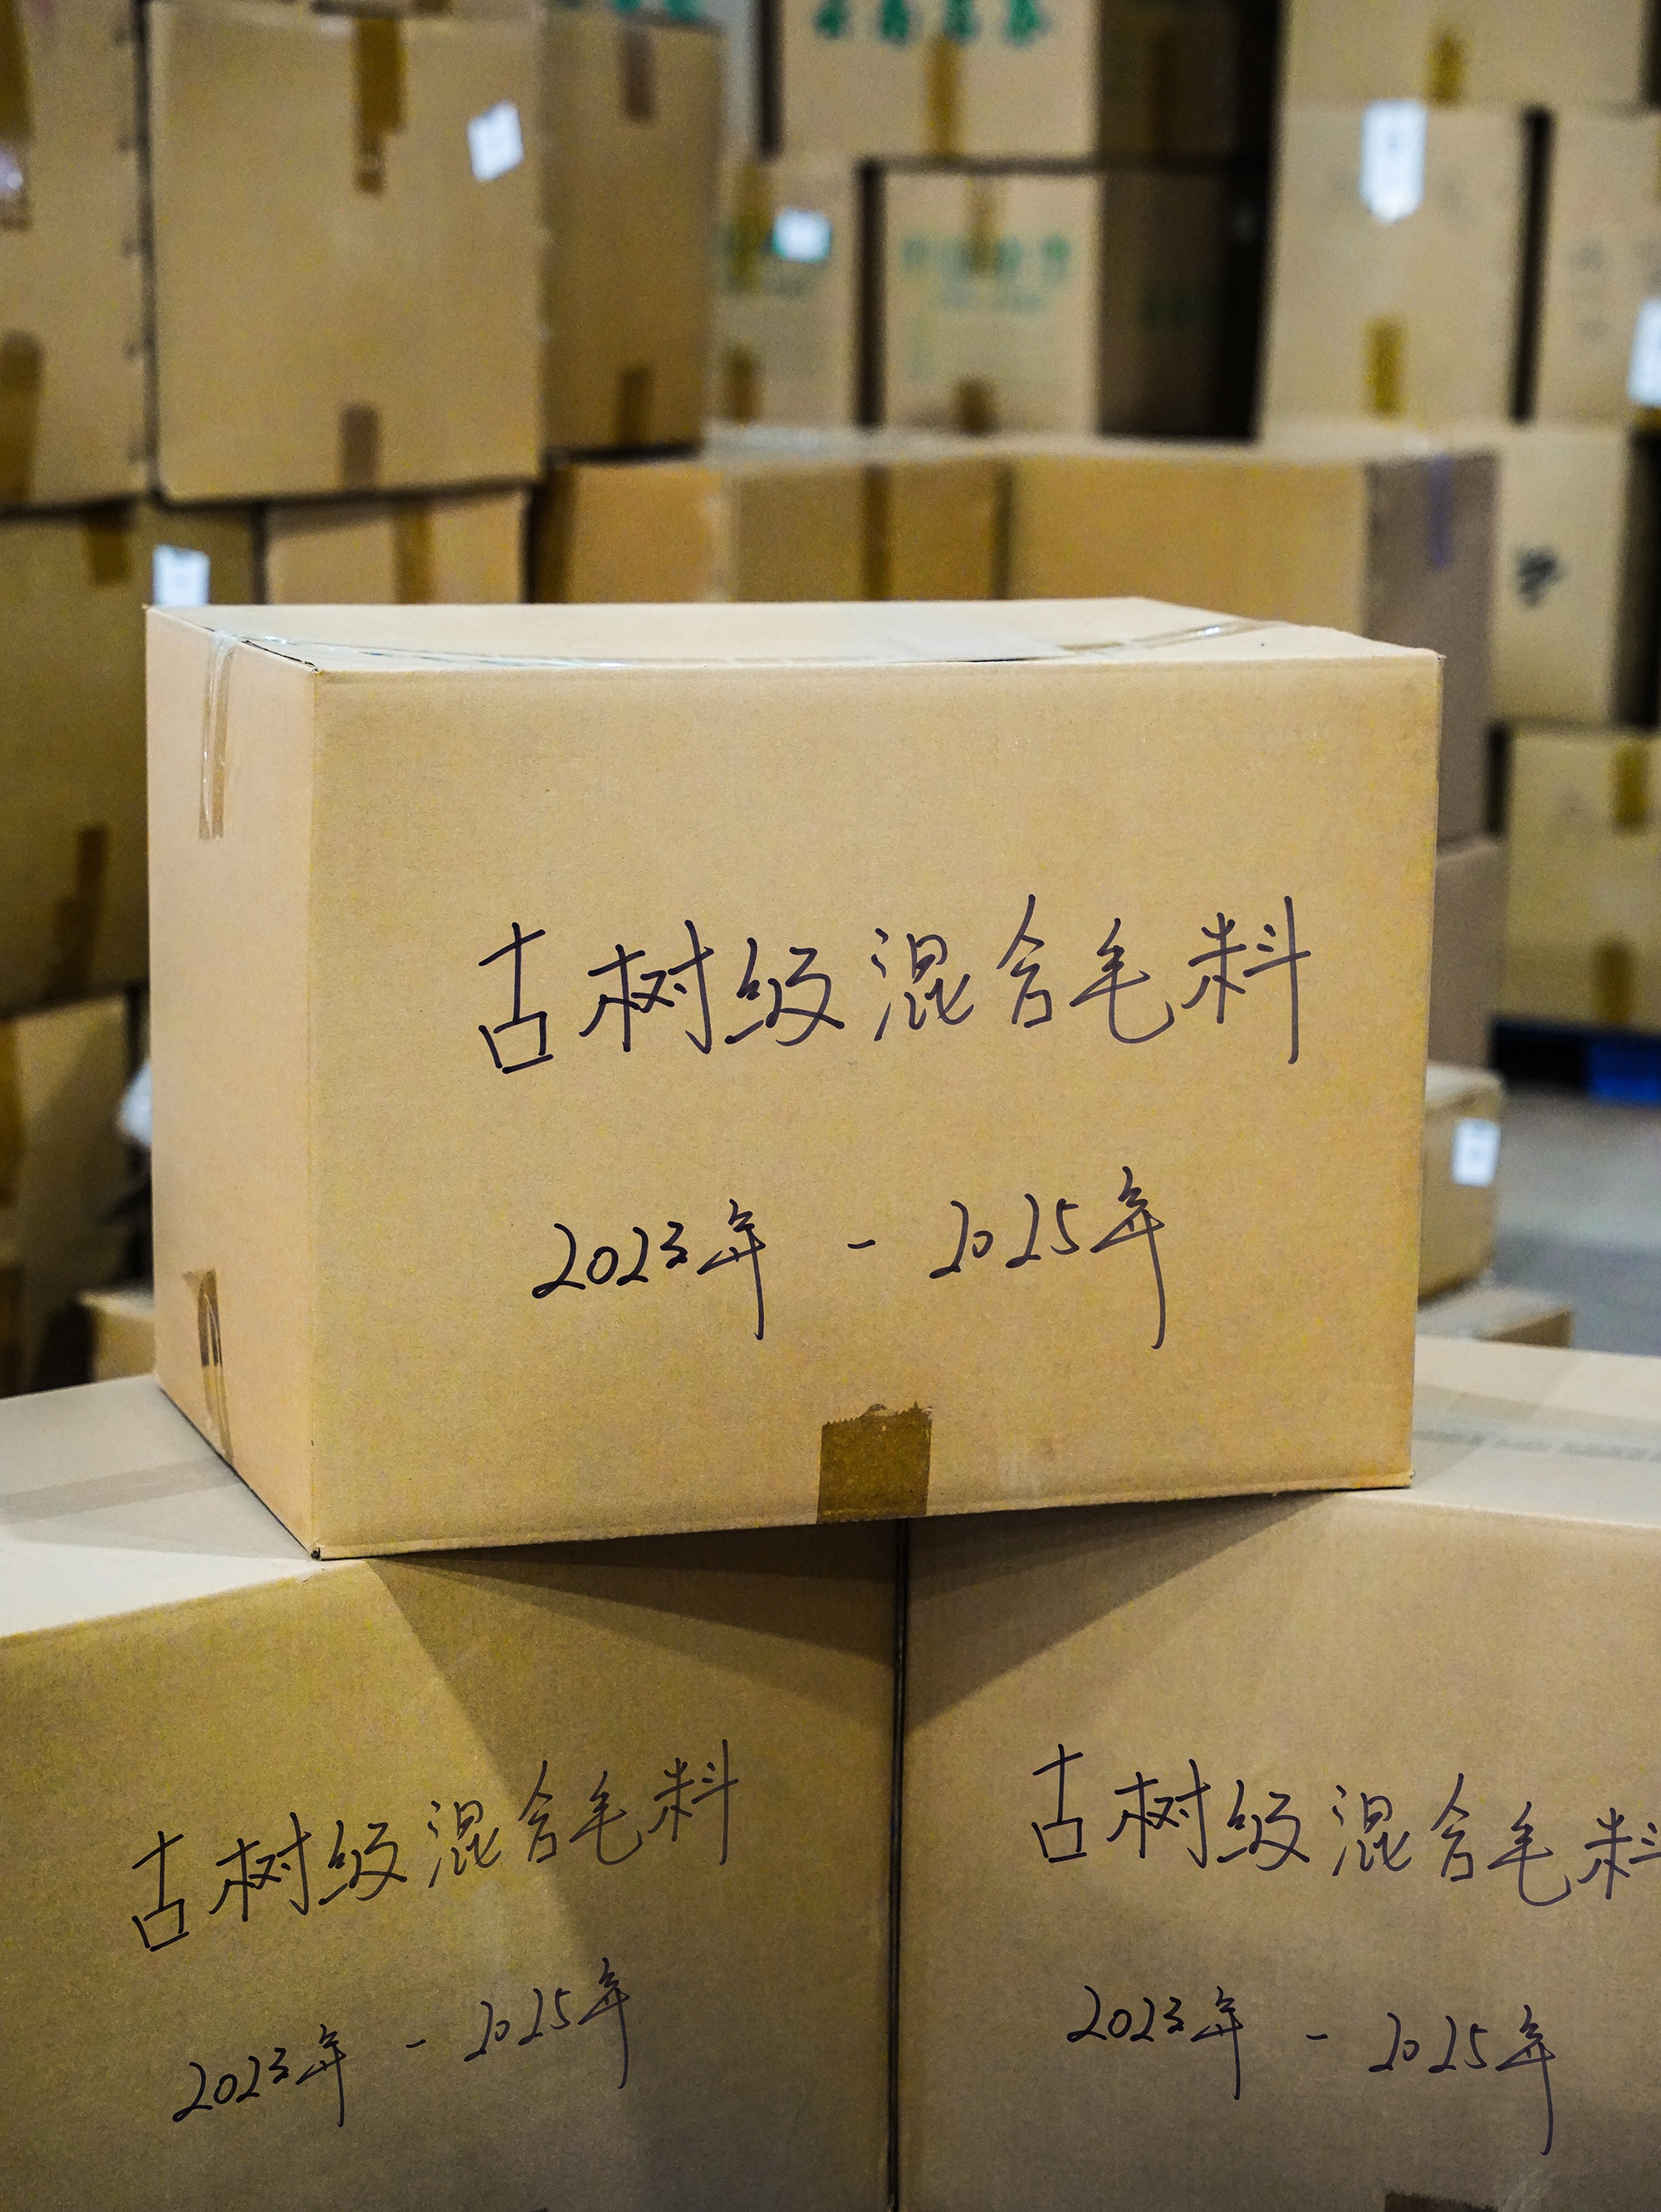 古树级混合毛料
2023年 - 2025年
古树级混合毛料
2023年 - 2025年
古树级混合毛料
2023年 - 2025年